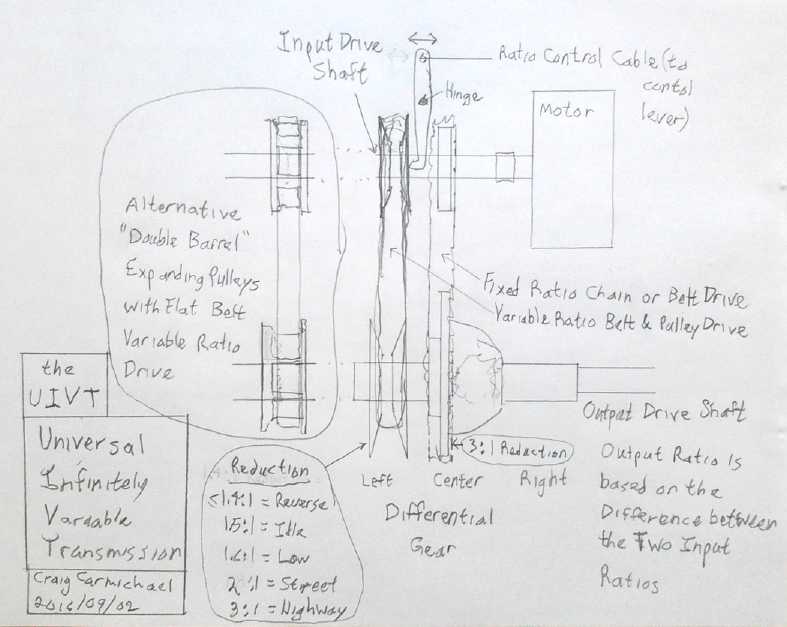 Input Drive
Shaft
Ratio Control Cable (to
contol
lever)
Hinge
Motor
Alternative
"Double Barrel"
Expanding Pulleys
with Flat Belt
Variable Ratio
Drive
Fixed Ratio Chain or Belt Drive
Variable Ratio Belt & Pulley Drive
the
UIVT
Universal
Infinitely
Variable
Transmission
Craig Carmichael
2016/09/02
Reduction
<1.4:1 = Reverse
1.5:1 = Idle
1.6:1 = Low
2:1 = Street
3:1 = Highway
3:1 Reduction
Left Center Right
Differential
Gear
Output Drive Shaft
Output Ratio is
based on the
Difference between
the Two Input
Ratios